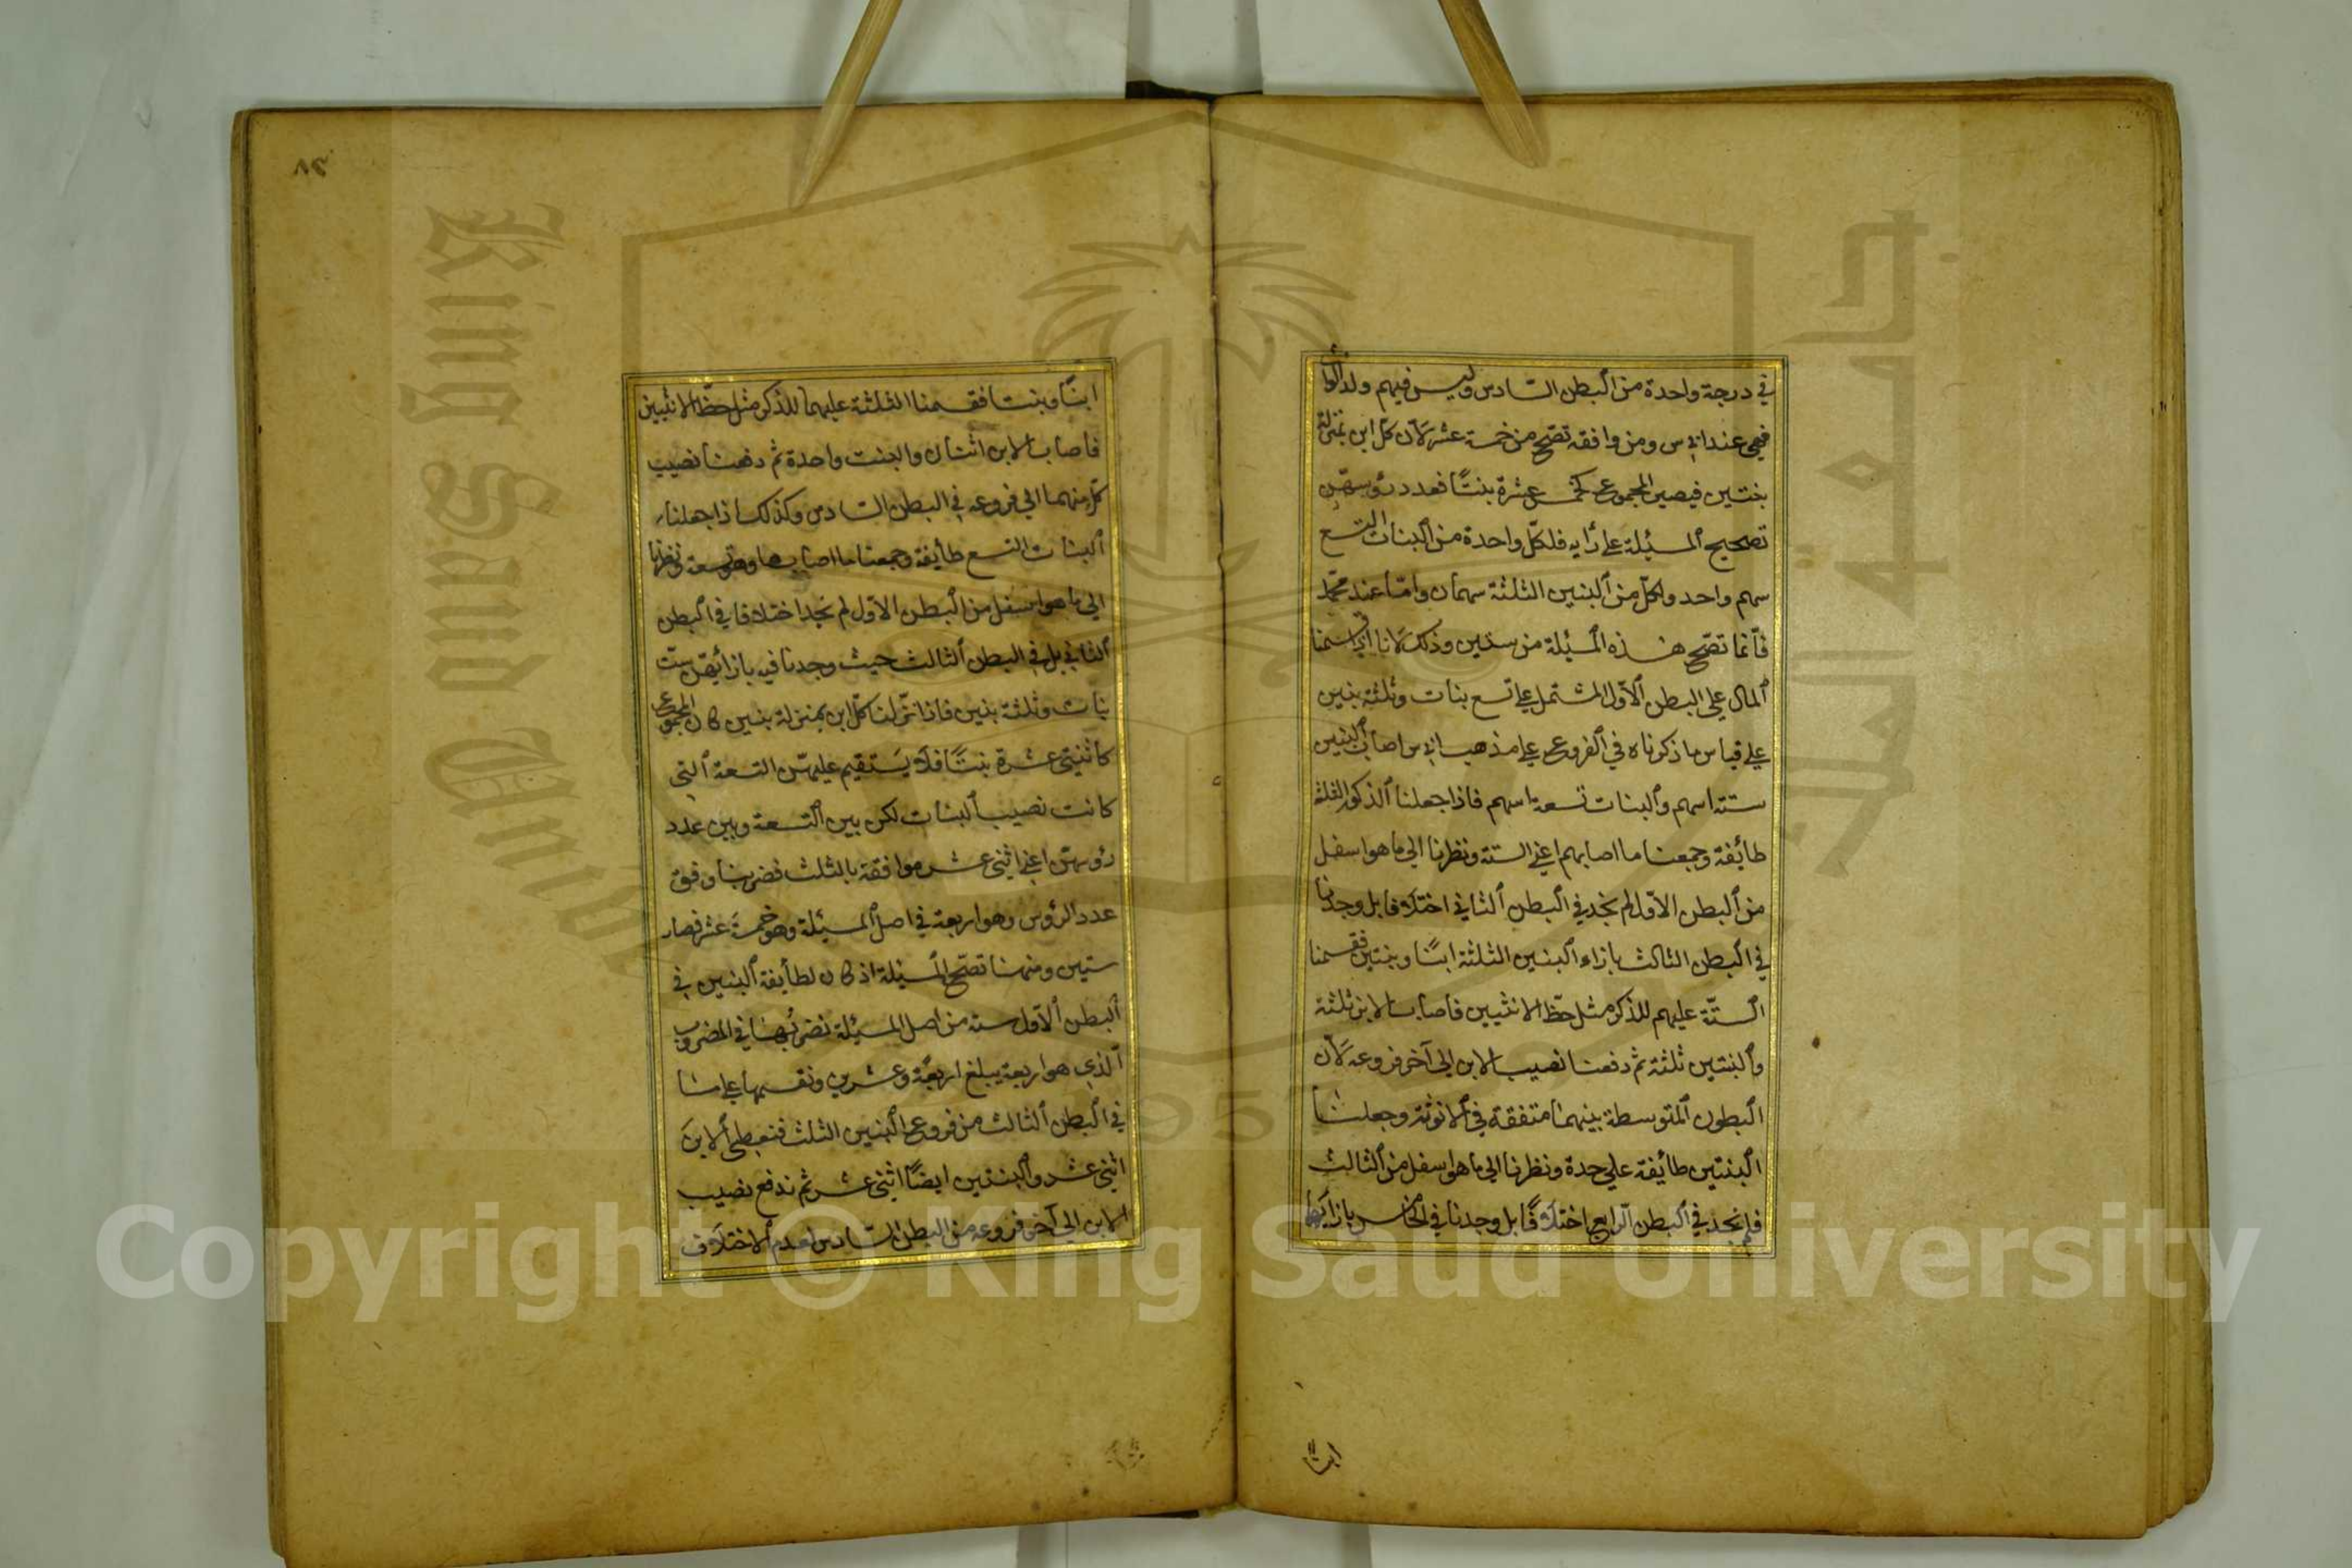 في درجة واحدة من البطن السادس وليس فيهم ولد الوارث
فهي عند ابى س ومن وافقه تصح من خمسة عشر لان كل ابن بمنزلة
بنتين فيصير المجموع كخمس عشرة بنتًا فعدد رؤسهن
تصحيح المسئلة على رأيه فلكل واحدة من البنات التسع
سهم واحد ولكل من البنين الثلثة سهمان واما عند محمد
فانما تصح هذه المسئلة من ستين وذلك لانا اذا قسمنا
المال على البطن الاول المشتمل على تسع بنات وثلثة بنين
على قياس ما ذكرناه في الفروع على مذهب ابى س اصاب البنين
ستة اسهم والبنات تسعة اسهم فاذا جعلنا الذكور الثلثة
طائفة وجمعنا ما اصابهم اعني الستة ونظرنا الى ما هو اسفل
من البطن الاول لم نجد في البطن الثاني اختلافا بل وجدنا
في البطن الثالث بازاء البنين الثلثة ابنًا وبنتين فقسمنا
الستة عليهم للذكر مثل حظ الانثيين فاصاب الابن ثلثة
والبنتين ثلثة ثم دفعنا نصيب الابن الى آخر فروعه لان
البطون المتوسطة بينهما متفقة في الانوثة وجعلنا
البنتين طائفة على حدة ونظرنا الى ما هو اسفل من الثالث
فلم نجد في البطن الرابع اختلافًا بل وجدنا في الخامس بازائهما
ابنًا
٨٢
ابنًا وبنتا فقسمنا الثلثة عليهما للذكر مثل حظ الانثيين
فاصاب الابن اثنان والبنت واحدة ثم دفعنا نصيب
كل منهما الى فروعه في البطن السادس وكذلك اذا جعلنا
البنات التسع طائفة وجمعنا ما اصابها وهو تسعة ونظرنا
الى ما هو اسفل من البطن الاول لم نجد اختلافا في البطن
الثاني بل في البطن الثالث حيث وجدنا فيه بازائهن ست
بنات وثلثة بنين فاذا نزلنا كل ابن بمنزلة بنتين كان المجموع
كاثنتي عشرة بنتًا فلا يستقيم عليهن التسعة التي
كانت نصيب البنات لكن بين التسعة وبين عدد
رؤسهن اعني اثنى عشر موافقة بالثلث فضربنا وفق
عدد الرؤس وهو اربعة في اصل المسئلة وهو خمسة عشر فصار
ستين ومنها تصح المسئلة اذ كان لطائفة البنين في
البطن الاول ستة من اصل المسئلة نضربها في المضروب
الذي هو اربعة يبلغ اربعة وعشرين ونقسمها على ما
في البطن الثالث من فروع البنين الثلث فنعطى الابن
اثنى عشر والبنتين ايضًا اثنى عشر ثم ندفع نصيب
الابن الى آخر فروعه من البطن السادس لعدم الاختلاف
King Saud University
Copyright © King Saud University